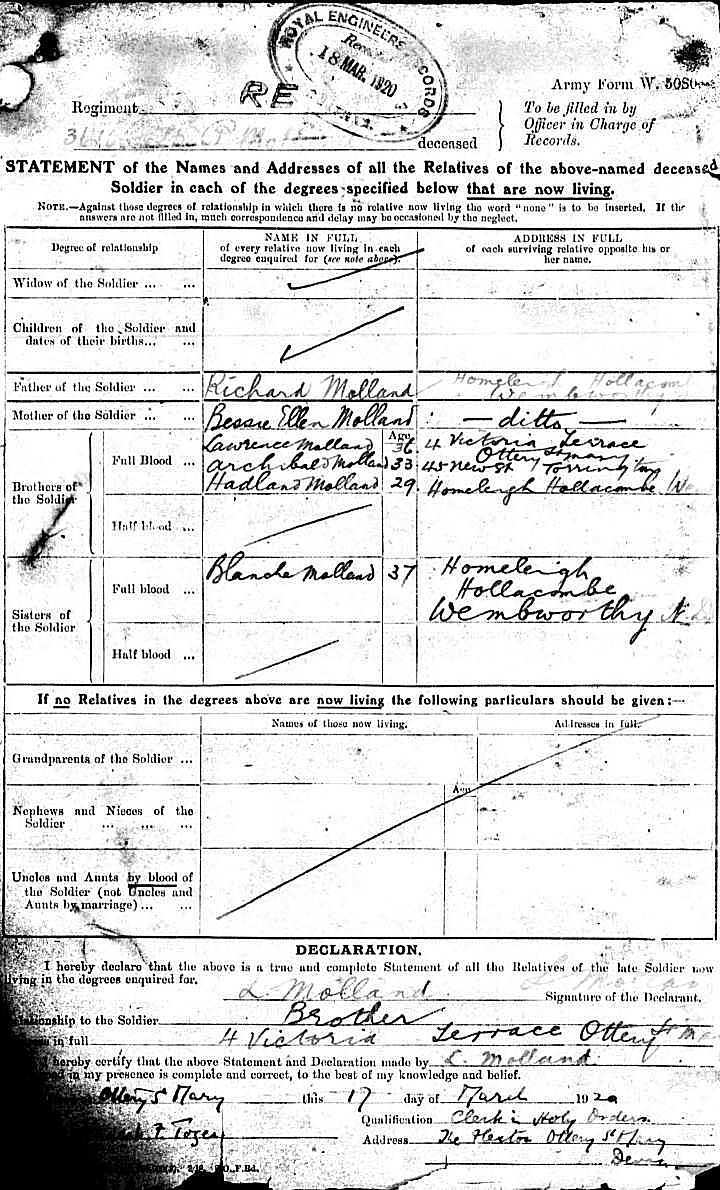 ROYAL ENGINEERS RECORDS
18 MAR. 1920
RE
Army Form W. 5080
Regiment
To be filled in by
Officer in Charge of
Records.
deceased
STATEMENT of the Names and Addresses of all the Relatives of the above-named deceased
Soldier in each of the degrees specified below that are now living.
NOTE.—Against those degrees of relationship in which there is no relative now living the word "none" is to be inserted. If the
answers are not filled in, much correspondence and delay may be occasioned by the neglect.
Degree of relationship
NAME IN FULL
of every relative now living in each
degree enquired for (see note above).
ADDRESS IN FULL
of each surviving relative opposite his or
her name.
Widow of the Soldier ... ...
Children of the Soldier and
dates of their births... ...
Father of the Soldier ... ... Richard Molland Homeleigh Hollacom
Wembworthy
Mother of the Soldier ... ... Bessie Ellen Molland — ditto —
Age
Brothers of
the Soldier
Full Blood ... Lawrence Molland 36 4 Victoria Terrace
Ottery St mary
Archibald Molland 33 45 New St Torrington
Hadland Molland 29 Homeleigh Hollacombe
Half blood ...
Sisters of
the Soldier
Full blood ... Blanche Molland 37 Homeleigh
Hollacombe
Wembworthy N.
Half blood ...
If no Relatives in the degrees above are now living the following particulars should be given:—
Names of those now living.
Addresses in full.
Grandparents of the Soldier ...
Age
Nephews and Nieces of the
Soldier ... ... ...
Uncles and Aunts by blood of
the Soldier (not Uncles and
Aunts by marriage) ... ...
DECLARATION.
I hereby declare that the above is a true and complete Statement of all the Relatives of the late Soldier now
living in the degrees enquired for.
L Molland
Signature of the Declarant.
to the Soldier Brother
in full 4 Victoria Terrace Ottery St M
hereby certify that the above Statement and Declaration made by L. Molland
in my presence is complete and correct, to the best of my knowledge and belief.
Ottery St Mary this 17 day of March 1920
Qualification Clerk in Holy Orders
F Tozer
Address The Ottery St Mary
Devon